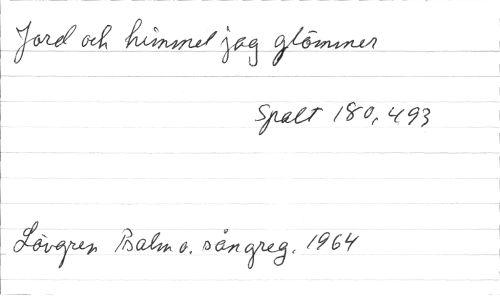 Jord och himmel jag glömmer
Spalt 180, 493
Lövgren Psalm o. sångreg. 1964